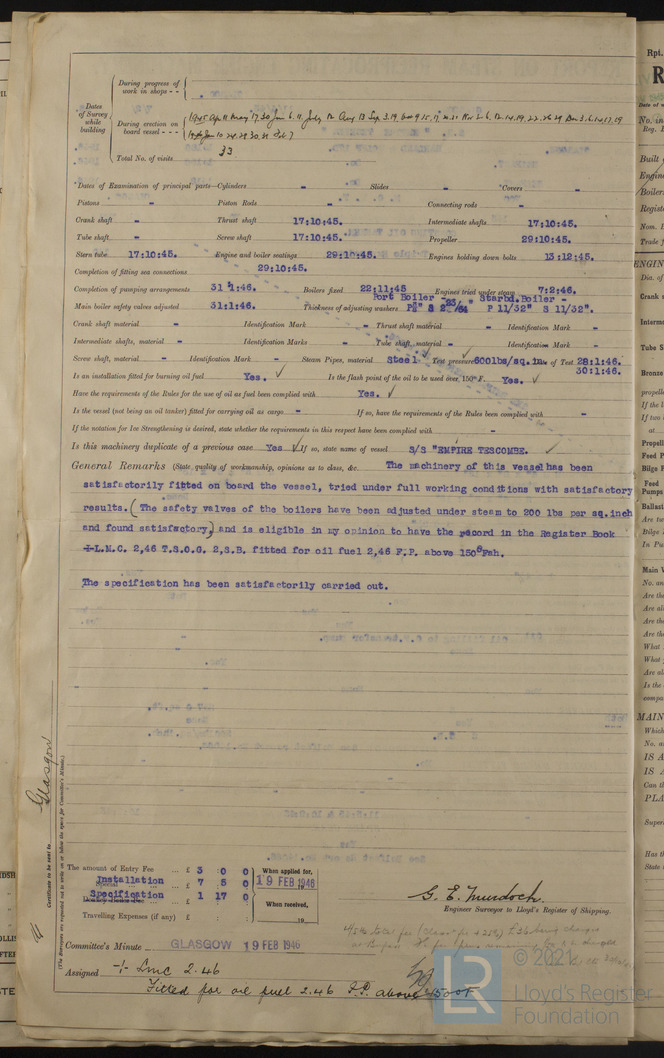 During progress of work in shops - -
Dates of Survey while building
During erection on board vessel - - -
Total No. of visits 33
Dates of Examination of principal parts—Cylinders - Slides - Covers -
Pistons - Piston Rods - Connecting rods -
Crank shaft - Thrust shaft 17:10:45. Intermediate shafts 17:10:45.
Tube shaft - Screw shaft 17:10:45. Propeller 29:10:45.
Stern tube 17:10:45. Engine and boiler seatings 29:10:45. Engines holding down bolts 13:12:45.
Completion of fitting sea connections 29:10:45.
Completion of pumping arrangements 31:1:46. Boilers fixed 22:11:45 Engines tried under steam 7:2:46.
Port Boiler - Starbd. Boiler -
Main boiler safety valves adjusted 31:1:46. Thickness of adjusting washers P 11/32" S 11/32".
Crank shaft material - Identification Mark - Thrust shaft material - Identification Mark -
Intermediate shafts, material - Identification Marks - Tube shaft, material - Identification Mark -
Screw shaft, material - Identification Mark - Steam Pipes, material Steel Test pressure 600lbs/sq.in. Date of Test 28:1:46.
30:1:46.
Is an installation fitted for burning oil fuel Yes. ✓ Is the flash point of the oil to be used over 150° F. Yes. ✓
Have the requirements of the Rules for the use of oil as fuel been complied with Yes. ✓
Is the vessel (not being an oil tanker) fitted for carrying oil as cargo - If so, have the requirements of the Rules been complied with -
If the notation for Ice Strengthening is desired, state whether the requirements in this respect have been complied with -
Is this machinery duplicate of a previous case Yes ✓ If so, state name of vessel S/S "EMPIRE TESCOMBE.
General Remarks (State quality of workmanship, opinions as to class, &c. The machinery of this vessel has been
satisfactorily fitted on board the vessel, tried under full working conditions with satisfactory
results. (The safety valves of the boilers have been adjusted under steam to 200 lbs per sq.inch
and found satisfactory) and is eligible in my opinion to have the record in the Register Book
L.M.C. 2,46 T.S.O.G. 2,S.B. fitted for oil fuel 2,46 F.P. above 150°Fah.
The specification has been satisfactorily carried out.
Glasgow
Certificate to be sent to
(The Surveyors are requested not to write on or below the space for Committee's Minute.)
The amount of Entry Fee .. £ 3 : 0 : 0 When applied for,
Installation
Special ... ... £ 7 5 0 19 FEB 1946
Specification
£ 1 17 0 When received,
Travelling Expenses (if any) £ : : 19
G. E. Murdoch.
Engineer Surveyor to Lloyd's Register of Shipping.
Committee's Minute GLASGOW 19 FEB 1946
Assigned + Lmc 2.46
Fitted for oil fuel 2.46 F.P. above 150°F
© 2021
LR
Lloyd's Register
Foundation